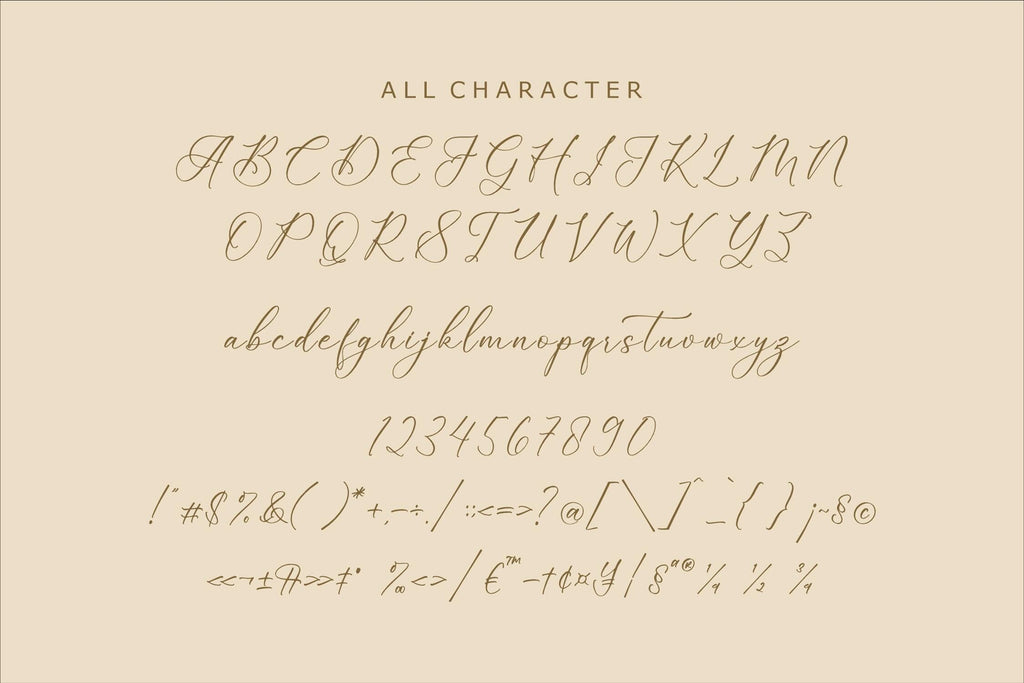 ALL CHARACTER
ABCDEFGHIJKLMN
OPQRSTUVWXYZ
abcdefghijklmnopqrstuvwxyz
1234567890
!"#$%&()*+,-÷./:;<=>?@[\]^_`{}¡~§©
««¬±»»‡° ‰<>/€™–†¢¤¥¦§ª®¼ ½ ¾